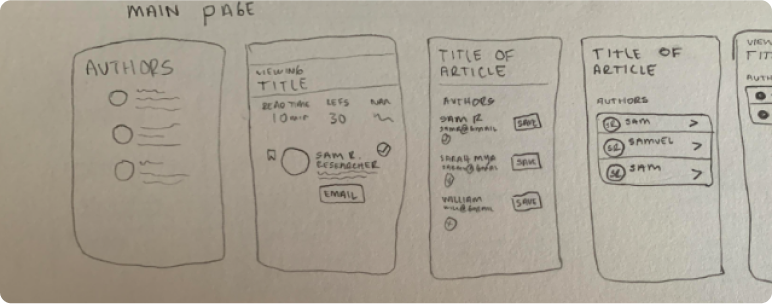 MAIN PAGE
AUTHORS
VIEWING
TITLE
READ TIME REFS
10 min 30
SAM R.
RESEARCHER
EMAIL
TITLE OF
ARTICLE
AUTHORS
SAM R
SAVE
SARAH
SAVE
WILLIAM
SAVE
TITLE OF
ARTICLE
AUTHORS
SR SAM >
SR SAMUEL >
SR SAM >
VIEW
TIT
AUTH